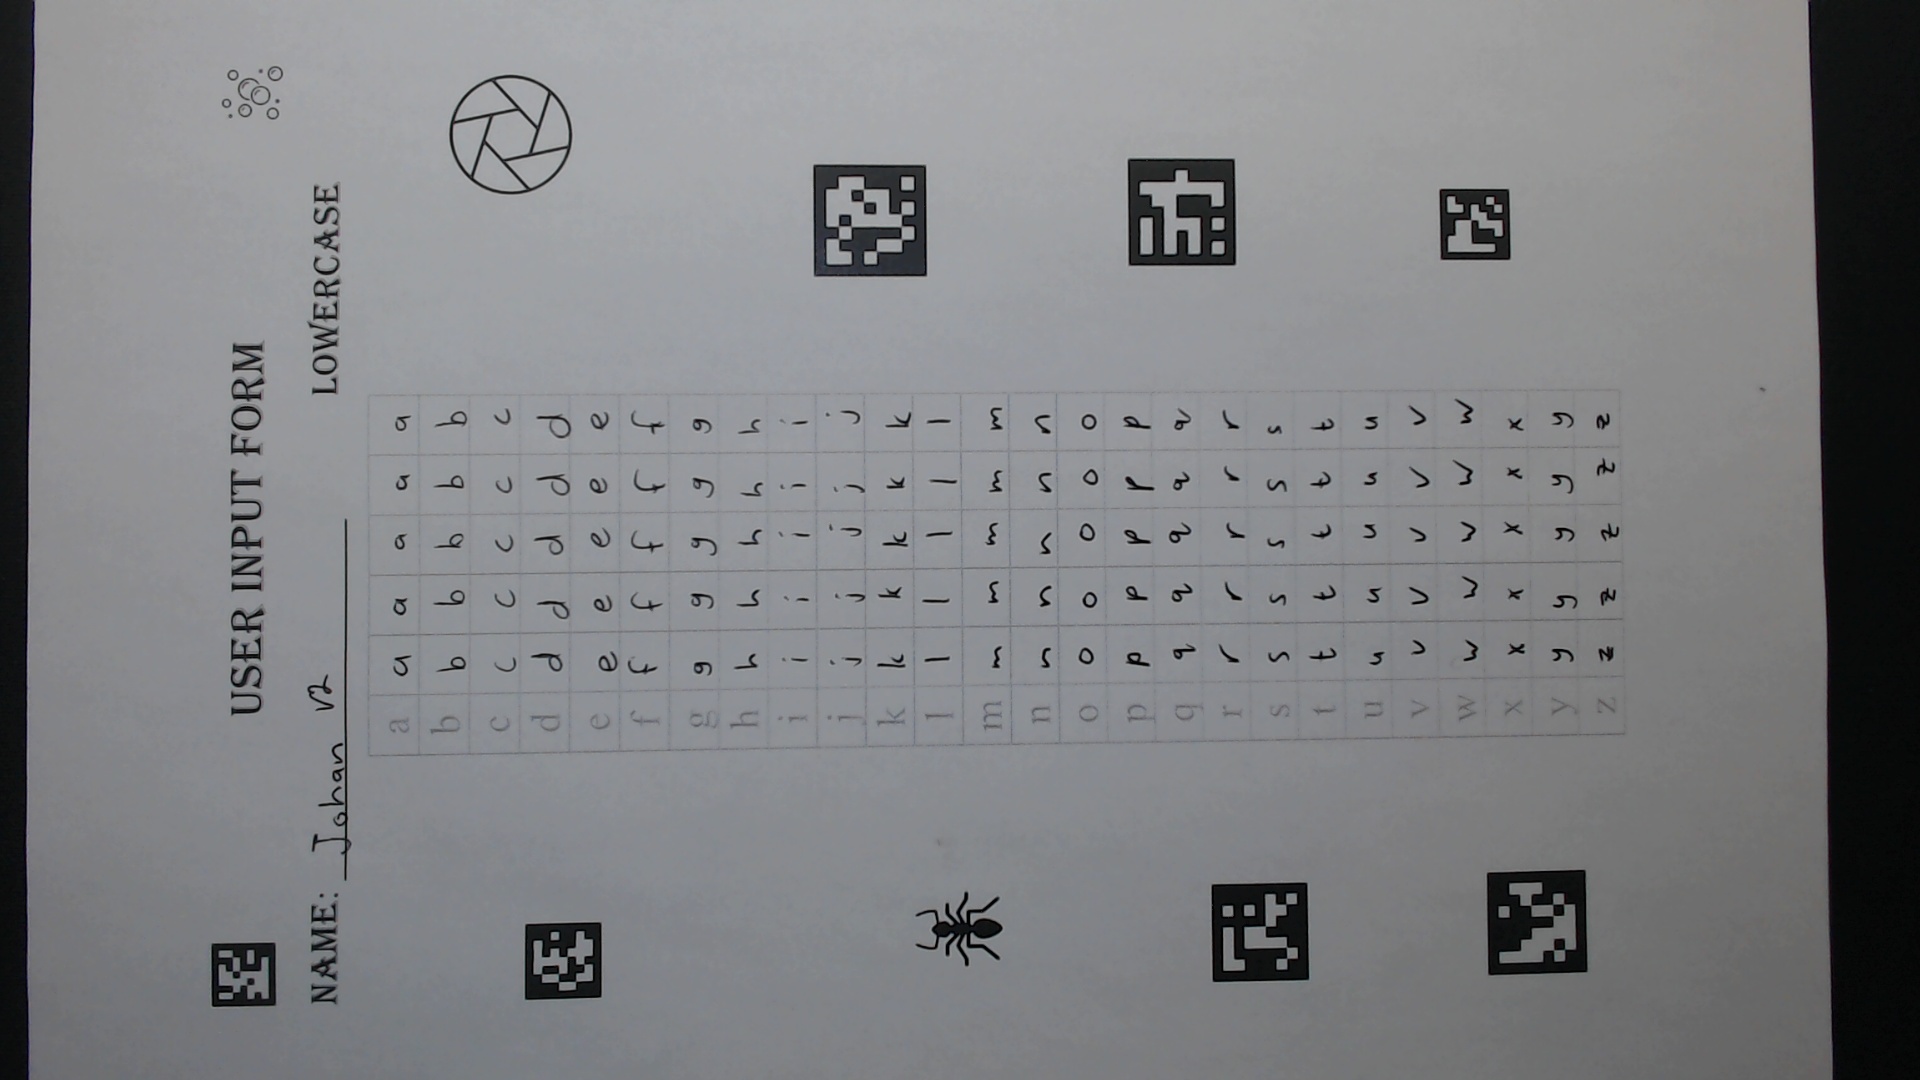 USER INPUT FORM
NAME: Johan v2 LOWERCASE
a a a a a a
b b b b b b
c c c c c c
d d d d d d
e e e e e e
f f f f f f
g g g g g g
h h h h h h
i i i i i i
j j j j j j
k k k k k k
l l l l l l
m m m m m m
n n n n n n
o o o o o o
p p p p p p
q q q q q q
r r r r r r
s s s s s s
t t t t t t
u u u u u u
v v v v v v
w w w w w w
x x x x x x
y y y y y y
z z z z z z